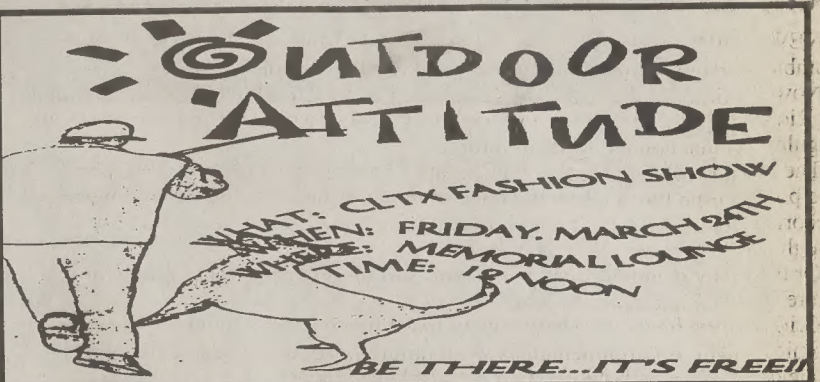 OUTDOOR
ATTITUDE
WHAT: CLTX FASHION SHOW
WHEN: FRIDAY, MARCH 24TH
WHERE: MEMORIAL LOUNGE
TIME: 12 NOON
BE THERE...IT'S FREE!!